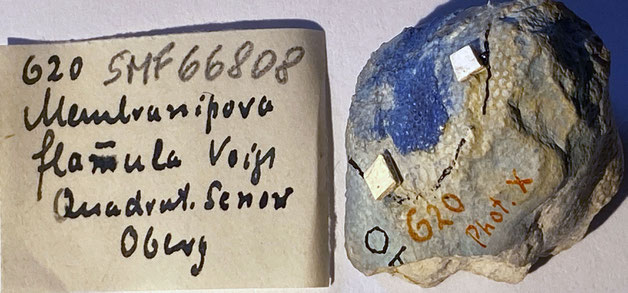 620 SMF66808
Membranipora
flam̄ula Voigt
Quadrat. Senon
Oberg
620
Phot. X